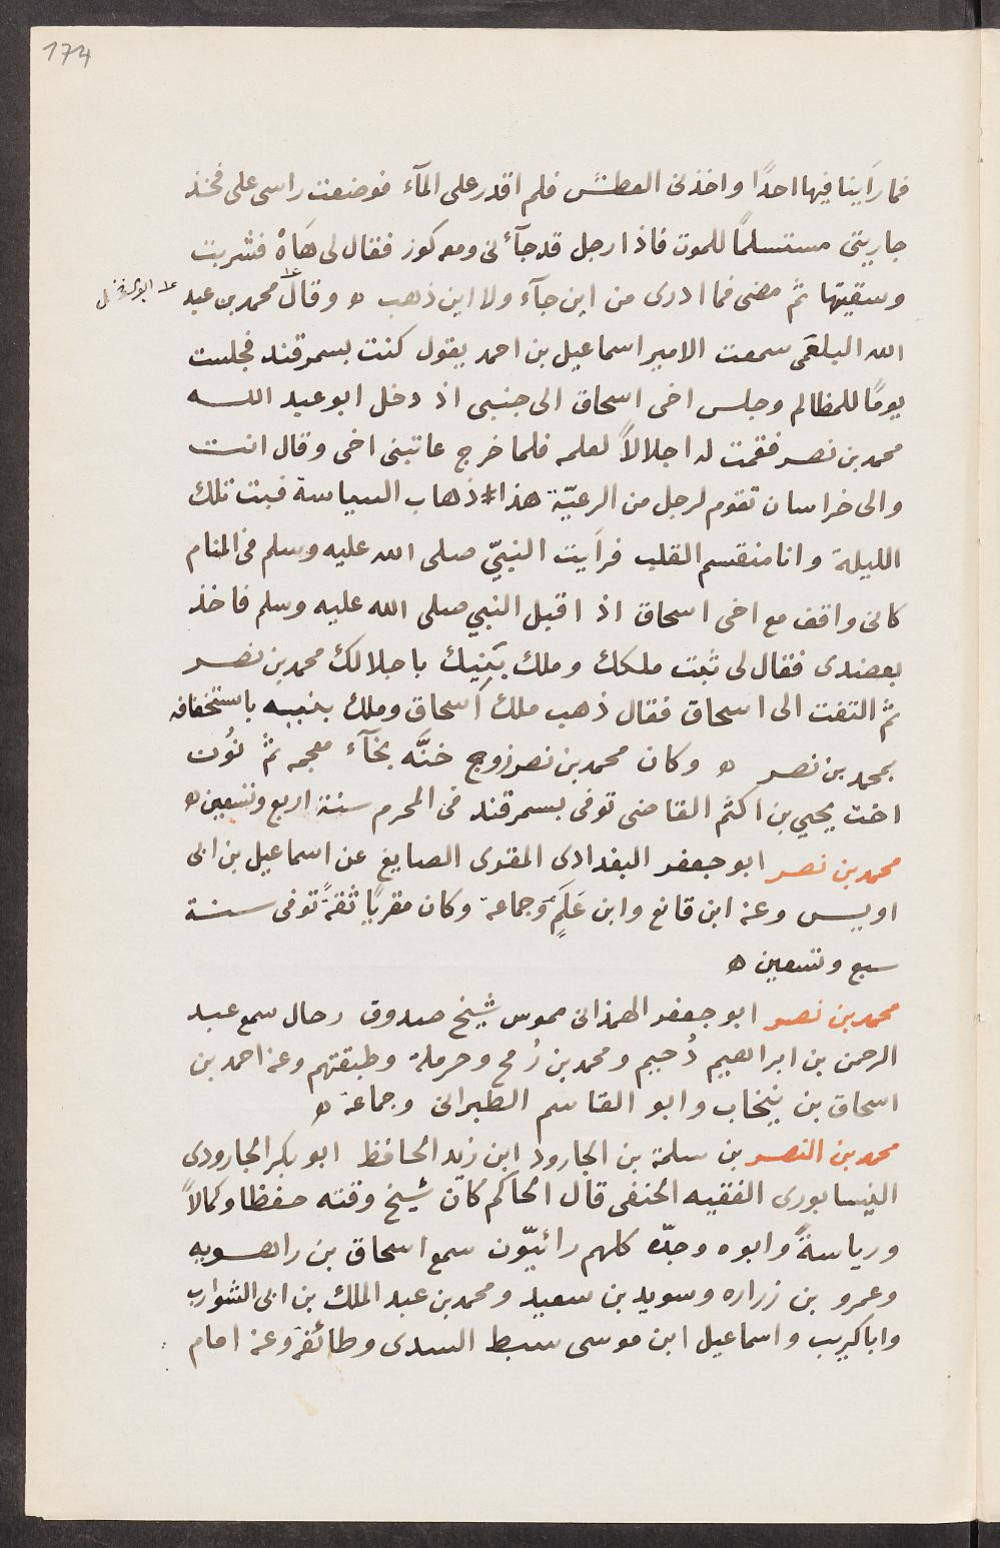 174
فما رَأينا فيها احدًا واخذنى العطش فلم اقدر على المآء فوضعت راسى على فخذ
جاريتى مستسلمًا للموت فاذا رجل قد جآءنى ومعه كوز فقال لى هَاهْ فشربت
وسقيتها ثم مضى فما ادرى من اين جآء ولا اين ذهب ه وقال محمد بن عبد
ابو الفضل
الله البلعَمى سمعت الامير اسماعيل بن احمد يقول كنت بسمرقند فجلست
يومًا للمظالم وجلس اخى اسحاق الى جنبى اذ دخل ابو عبد الله
محمد بن نصر فقمت له اجلالاً لعلمه فلما خرج عاتبنى اخى وقال انت
والى خراسان تقوم لرجل من الرعيّة هذا ذهاب السياسة فبت تلك
الليلة وانا منقسم القلب فرأيت النبيّ صلى الله عليه وسلم فى المنام
كانى واقف مع اخى اسحاق اذ اقبل النبي صلى الله عليه وسلم فاخذ
بعضدى فقال لى ثبت ملكك وملك بَنِيك باجلالك محمد بن نصر
ثم التفت الى اسحاق فقال ذهب ملك اسحاق وملك بنيه باستخفافه
بمحمد بن نصر ه وكان محمد بن نصر زوج خنَّه بخآء معجمه ثم نوُن
اخت يحيي بن اكثم القاضى توفى بسمرقند فى المحرم سنة اربع وتسعين ه
محمد بن نصر ابو جعفر البغدادى المقرى الصايغ عن اسماعيل بن ابى
اويس وعنه ابن قانع وابن عَلَمٍ وجماعة وكان مقريًا ثقةً توفى سنة
سبع وتسعين ه
محمد بن نصر ابو جعفر الهمذانى مموس شيخ صدوق رحال سمع عبد
الرحمن بن ابراهيم دُحيم ومحمد بن رُمح وحرملة وطبقتهم وعنه احمد بن
اسحاق بن نيخاب وابو القاسم الطبرانى وجماعة ه
محمد بن النصر بن سلمة بن الجارود ابن زيد الحافظ ابو بكر الجارودى
النيسابورى الفقيه الحنفى قال الحاكم كان شيخ وقته حفظا وكمالاً
ورياسةً وابوه وجدّه كلهم رائيّون سمع اسحاق بن راهويه
وعمرو بن زراره وسويد بن سعيد ومحمد بن عبد الملك بن ابى الشوارب
وابا كريب واسماعيل ابن موسى سبط السدى وطائفة وعنه امام